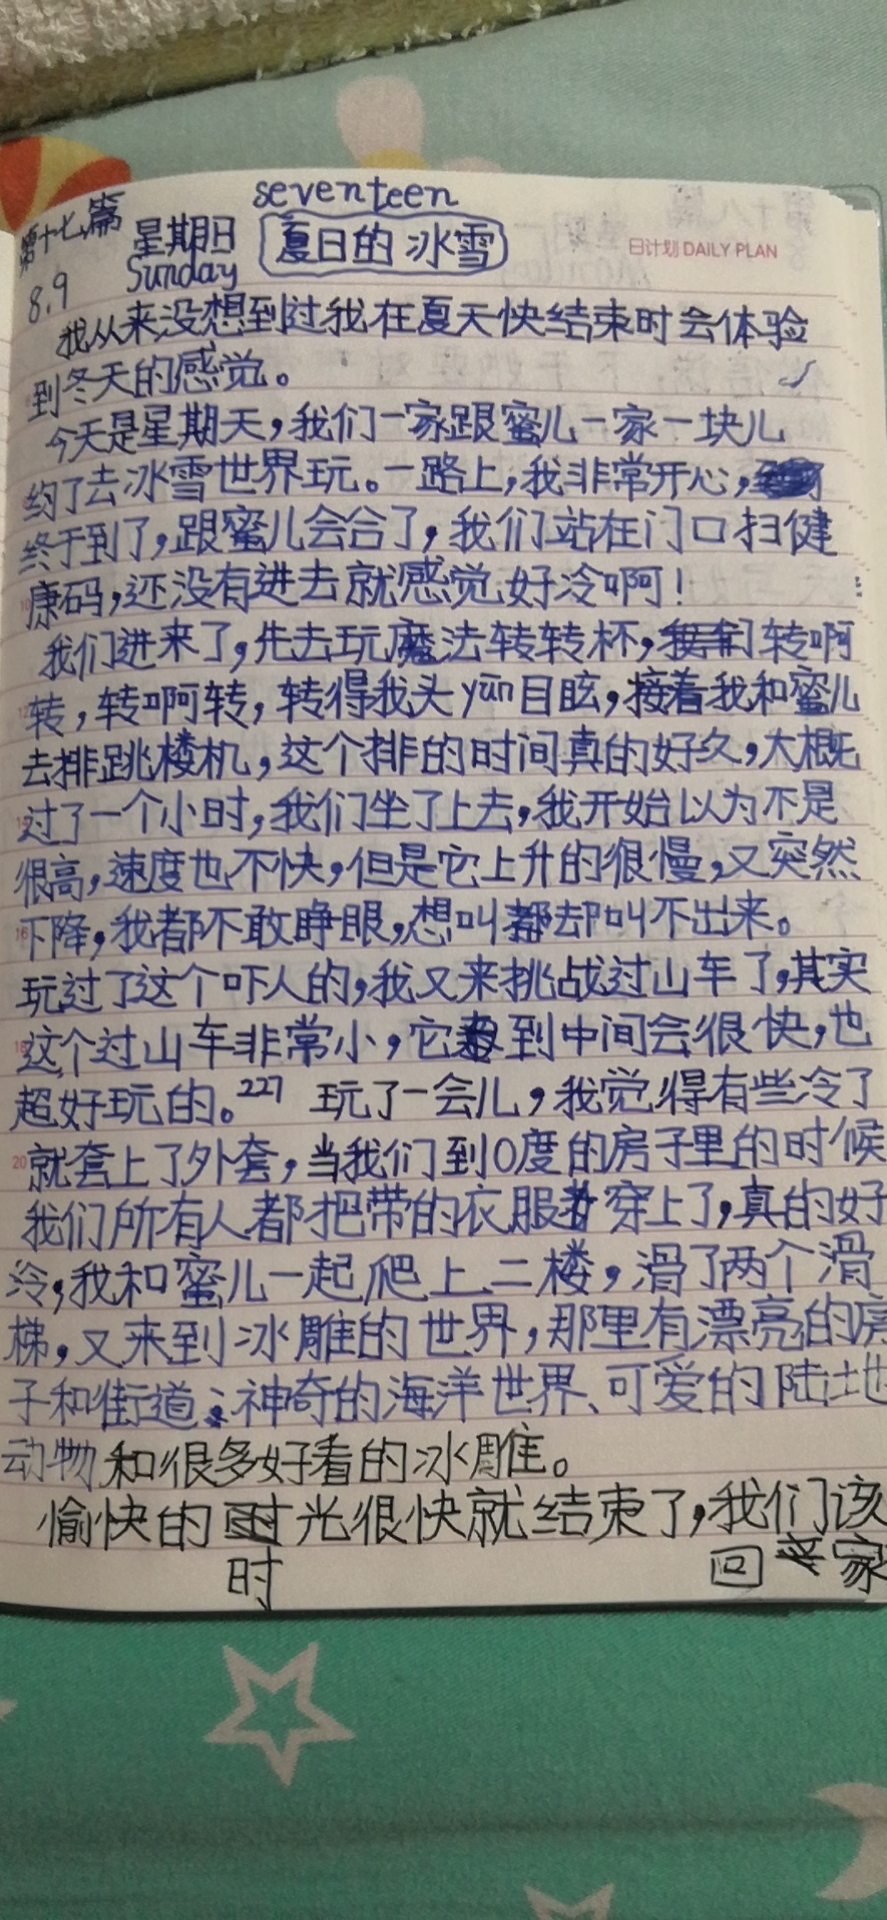 seventeen
第十七篇 星期日 夏日的冰雪 日计划 DAILY PLAN
8.9 Sunday
我从来没想到过我在夏天快结束时会体验
到冬天的感觉。
今天是星期天,我们一家跟蜜儿一家一块儿
约了去冰雪世界玩。一路上,我非常开心,
终于到了,跟蜜儿会合了,我们站在门口扫健
康码,还没有进去就感觉好冷啊!
我们进来了,先去玩魔法转转杯,转啊
转,转啊转,转得我头yūn目眩,接着我和蜜儿
去排跳楼机,这个排的时间真的好久,大概
过了一个小时,我们坐了上去,我开始以为不是
很高,速度也不快,但是它上升的很慢,又突然
下降,我都不敢睁眼,想叫都却叫不出来。
玩过了这个吓人的,我又来挑战过山车了,其实
这个过山车非常小,它到中间会很快,也
超好玩的。227 玩了一会儿,我觉得有些冷了
20 就套上了外套,当我们到0度的房子里的时候
我们所有人都把带的衣服穿上了,真的好
冷,我和蜜儿一起爬上二楼,滑了两个滑
梯,又来到冰雕的世界,那里有漂亮的房
子和街道、神奇的海洋世界、可爱的陆地
动物和很多好看的冰雕。
愉快的时光很快就结束了,我们该
回家